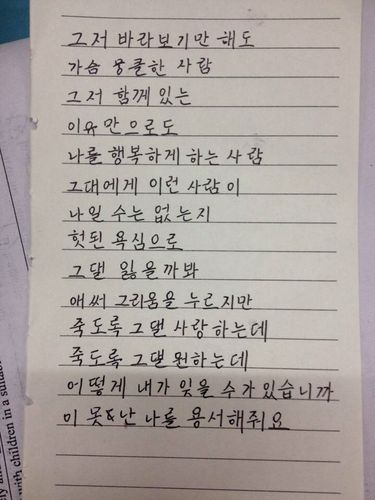 그저 바라보기만 해도
가슴 뭉클한 사람
그저 함께 있는
이유 만으로도
나를 행복하게 하는 사람
그대에게 이런 사람이
나일 수는 없는지
헛된 욕심으로
그댈 잃을까봐
애써 그리움을 누르지만
죽도록 그댈 사랑하는데
죽도록 그댈 원하는데
어떻게 내가 잊을 수가 있습니까
이 못난 나를 용서해줘요
with children in a